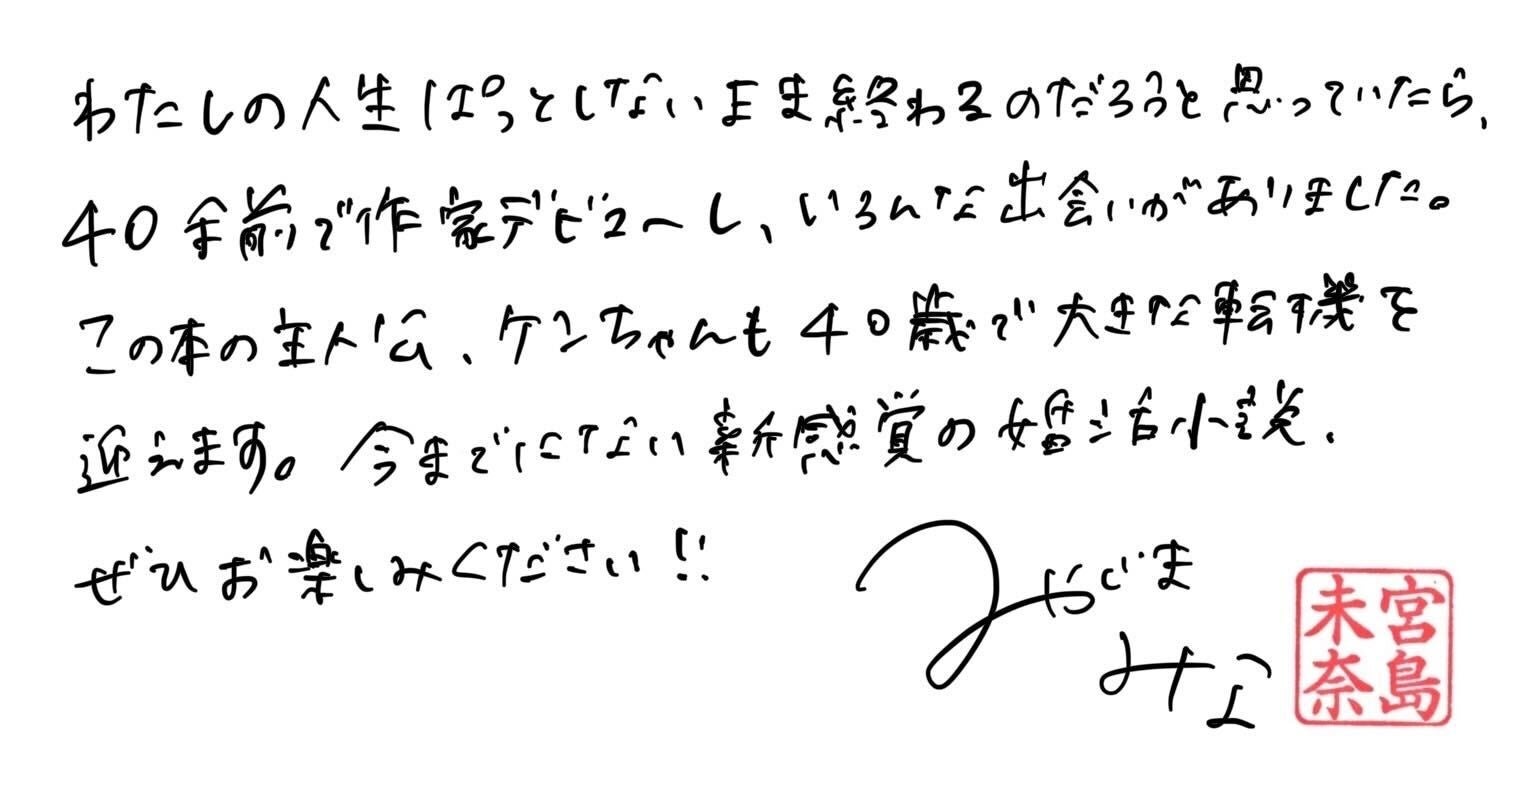 わたしの人生ぱっとしないまま終わるのだろうと思っていたら、
40手前で作家デビューし、いろんな出会いがありました。
この本の主人公、ケンちゃんも40歳で大きな転機を
迎えます。今までにない新感覚の婚活小説、
ぜひお楽しみください!!
みやじま
みな
宮島
未奈